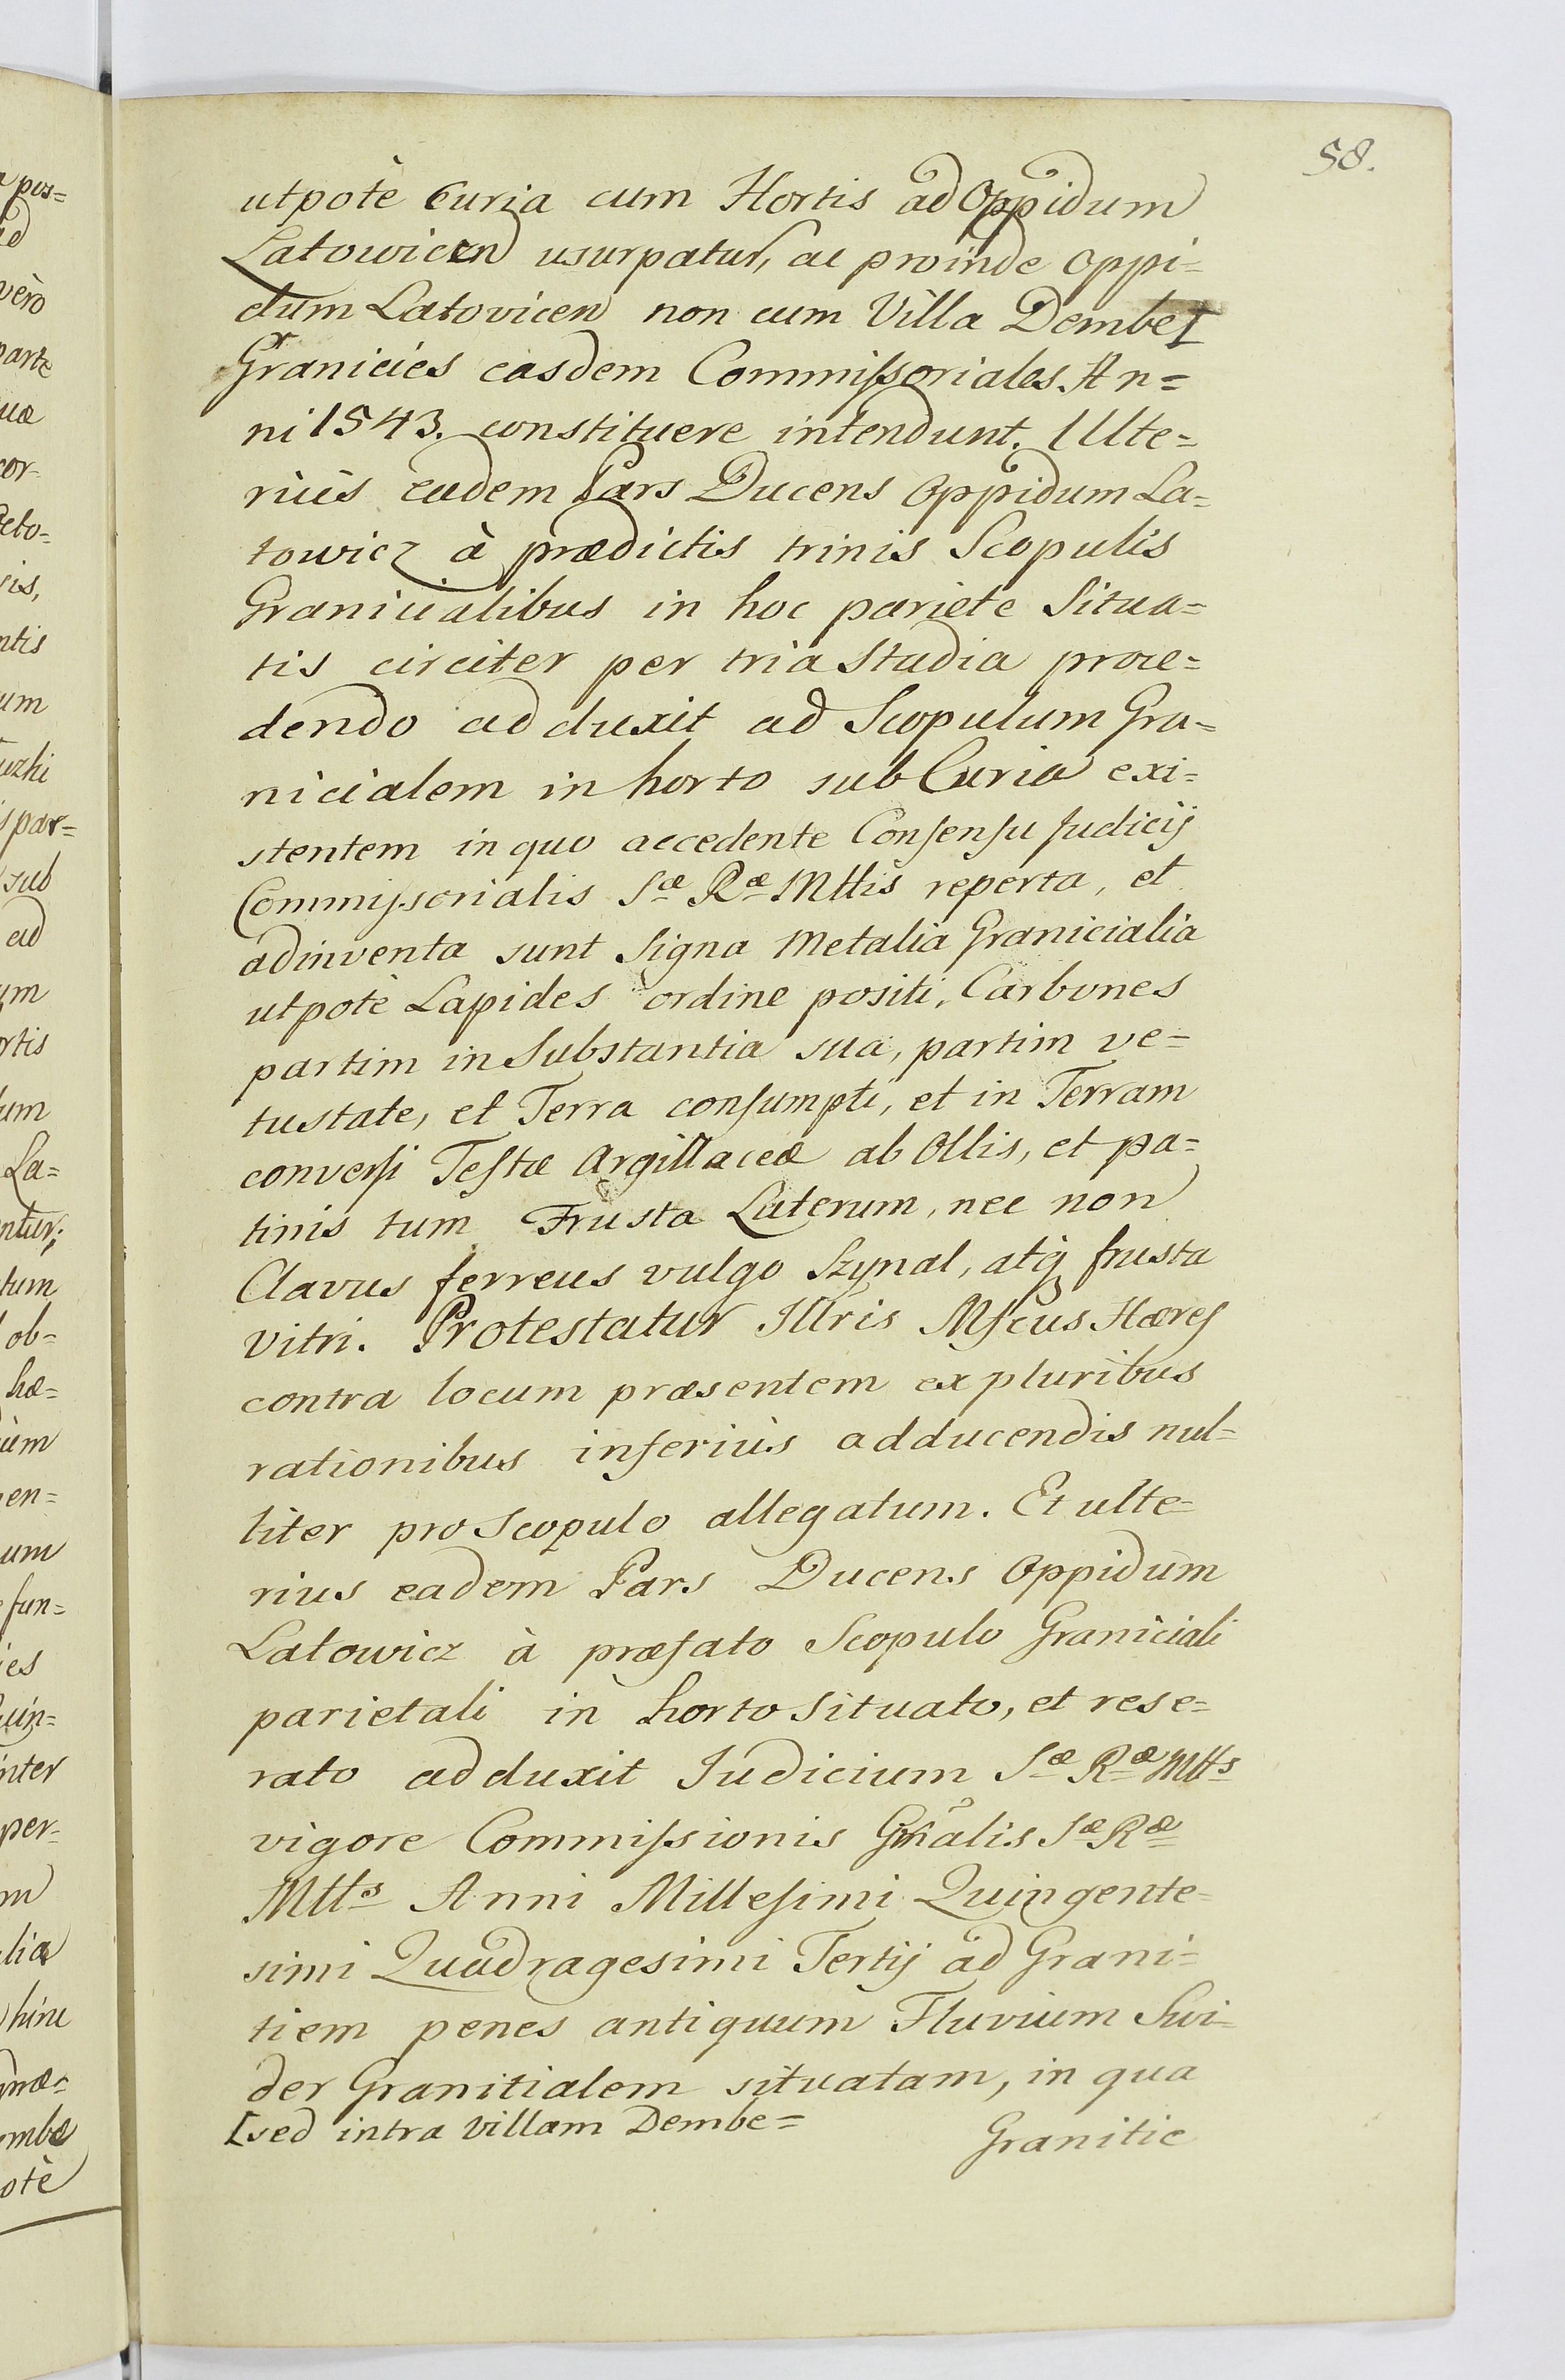 58.
utpotè Curia cum Hortis ad Oppidum
Latowicen usurpatur, ac proinde Oppi=
dum Latovicen non cum Villa Dembe [
Granicies easdem Commissoriales An=
ni 1543. constituere intendunt. Ulte=
riùs eadem Pars Ducens Oppidum La=
towicz à prædictis trinis Scopulis
Granicialibus in hoc pariete Situa=
tis circiter per tria Stadia proce=
dendo adduxit ad Scopulum Gra=
nicialem in horto sub Curia exi=
stentem in quo accedente Consensu Judicij
Commissorialis Sæ Ræ Mttis reperta, et
adinventa sunt Signa Metalia Granicialia
utpotè Lapides ordine positi, Carbones
partim in Substantia sua, partim ve=
tustate, et Terra consumpti, et in Terram
conversi Testæ Argillaceæ ab Ollis, et pa=
tinis tum Frusta Laterum, nec non
Clavus ferreus vulgo Szynal, atq frusta
vitri. Protestatur Illris Mfcus Hæres
contra locum præsentem ex pluribus
rationibus inferiùs adducendis nul=
liter pro Scopulo allegatum. Et ulte=
rius eadem Pars Ducens Oppidum
Latowicz à præfato Scopulo Graniciali
parietali in horto Situato, et rese=
rato adduxit Judicium Sæ Ræ Mtts
vigore Commissionis Gñalis Sæ Ræ
Mtts Anni Millesimi Quingente=
simi Quadragesimi Tertij ad Grani=
tiem penes antiquum Fluvium Swi=
der Granitialem situatam, in qua
[sed intra Villam Dembe=
Granitie
pos=
ad
verò
parte
cor-
sis,
ntis
um
par=
sub
ad
um
rtis
um
La=
ntur;
tum
ob=
hæ=
en=
um
fun=
ies
inter
per=
m
otè